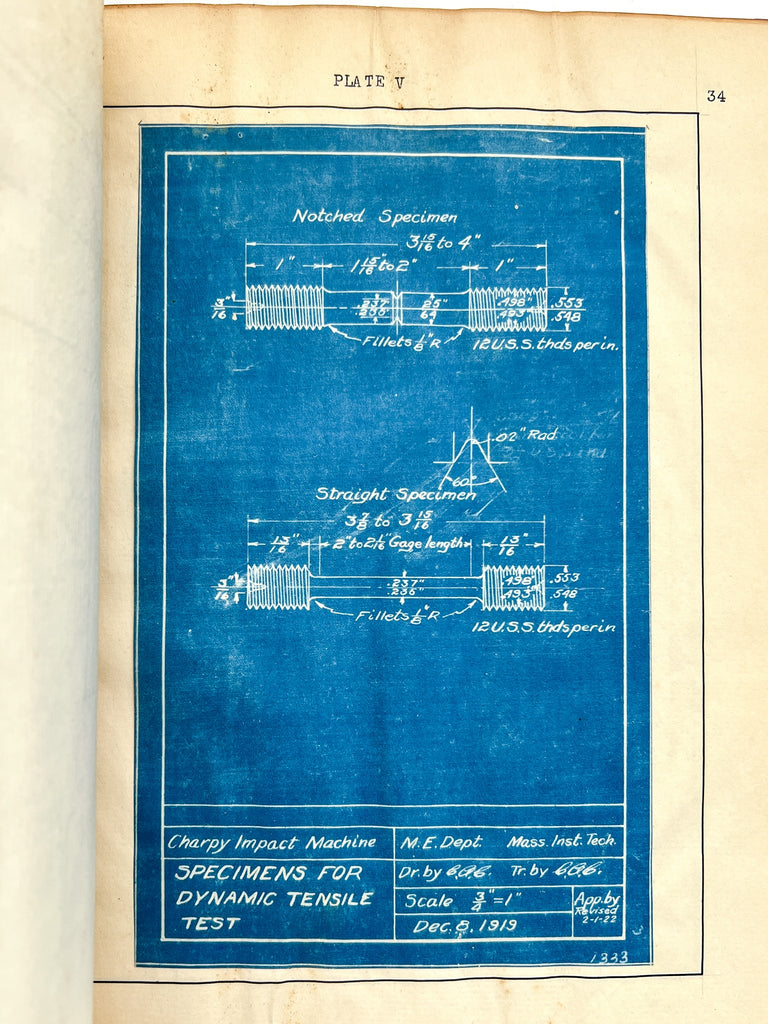 PLATE V
34
Notched Specimen
3 15/16 to 4"
1" 1 15/16" to 2" 1"
3"/16 .237" 25"/64 .498" .493" .553 .548
Fillets 1/8" R 12 U.S.S. thds per in.
.02" Rad
60°
Straight Specimen
3 7/8 to 3 15/16
13"/16 2" to 2 1/16" Gage length 13"/16
3"/16 .237" .498" .493" .553 .548
Fillets 1/8" R
12 U.S.S. thds per in
Charpy Impact Machine M.E. Dept. Mass. Inst. Tech.
SPECIMENS FOR
DYNAMIC TENSILE
TEST
Dr. by Tr. by
Scale 3/4" = 1"
App. by
Revised
2-1-22
Dec. 8, 1919
1333